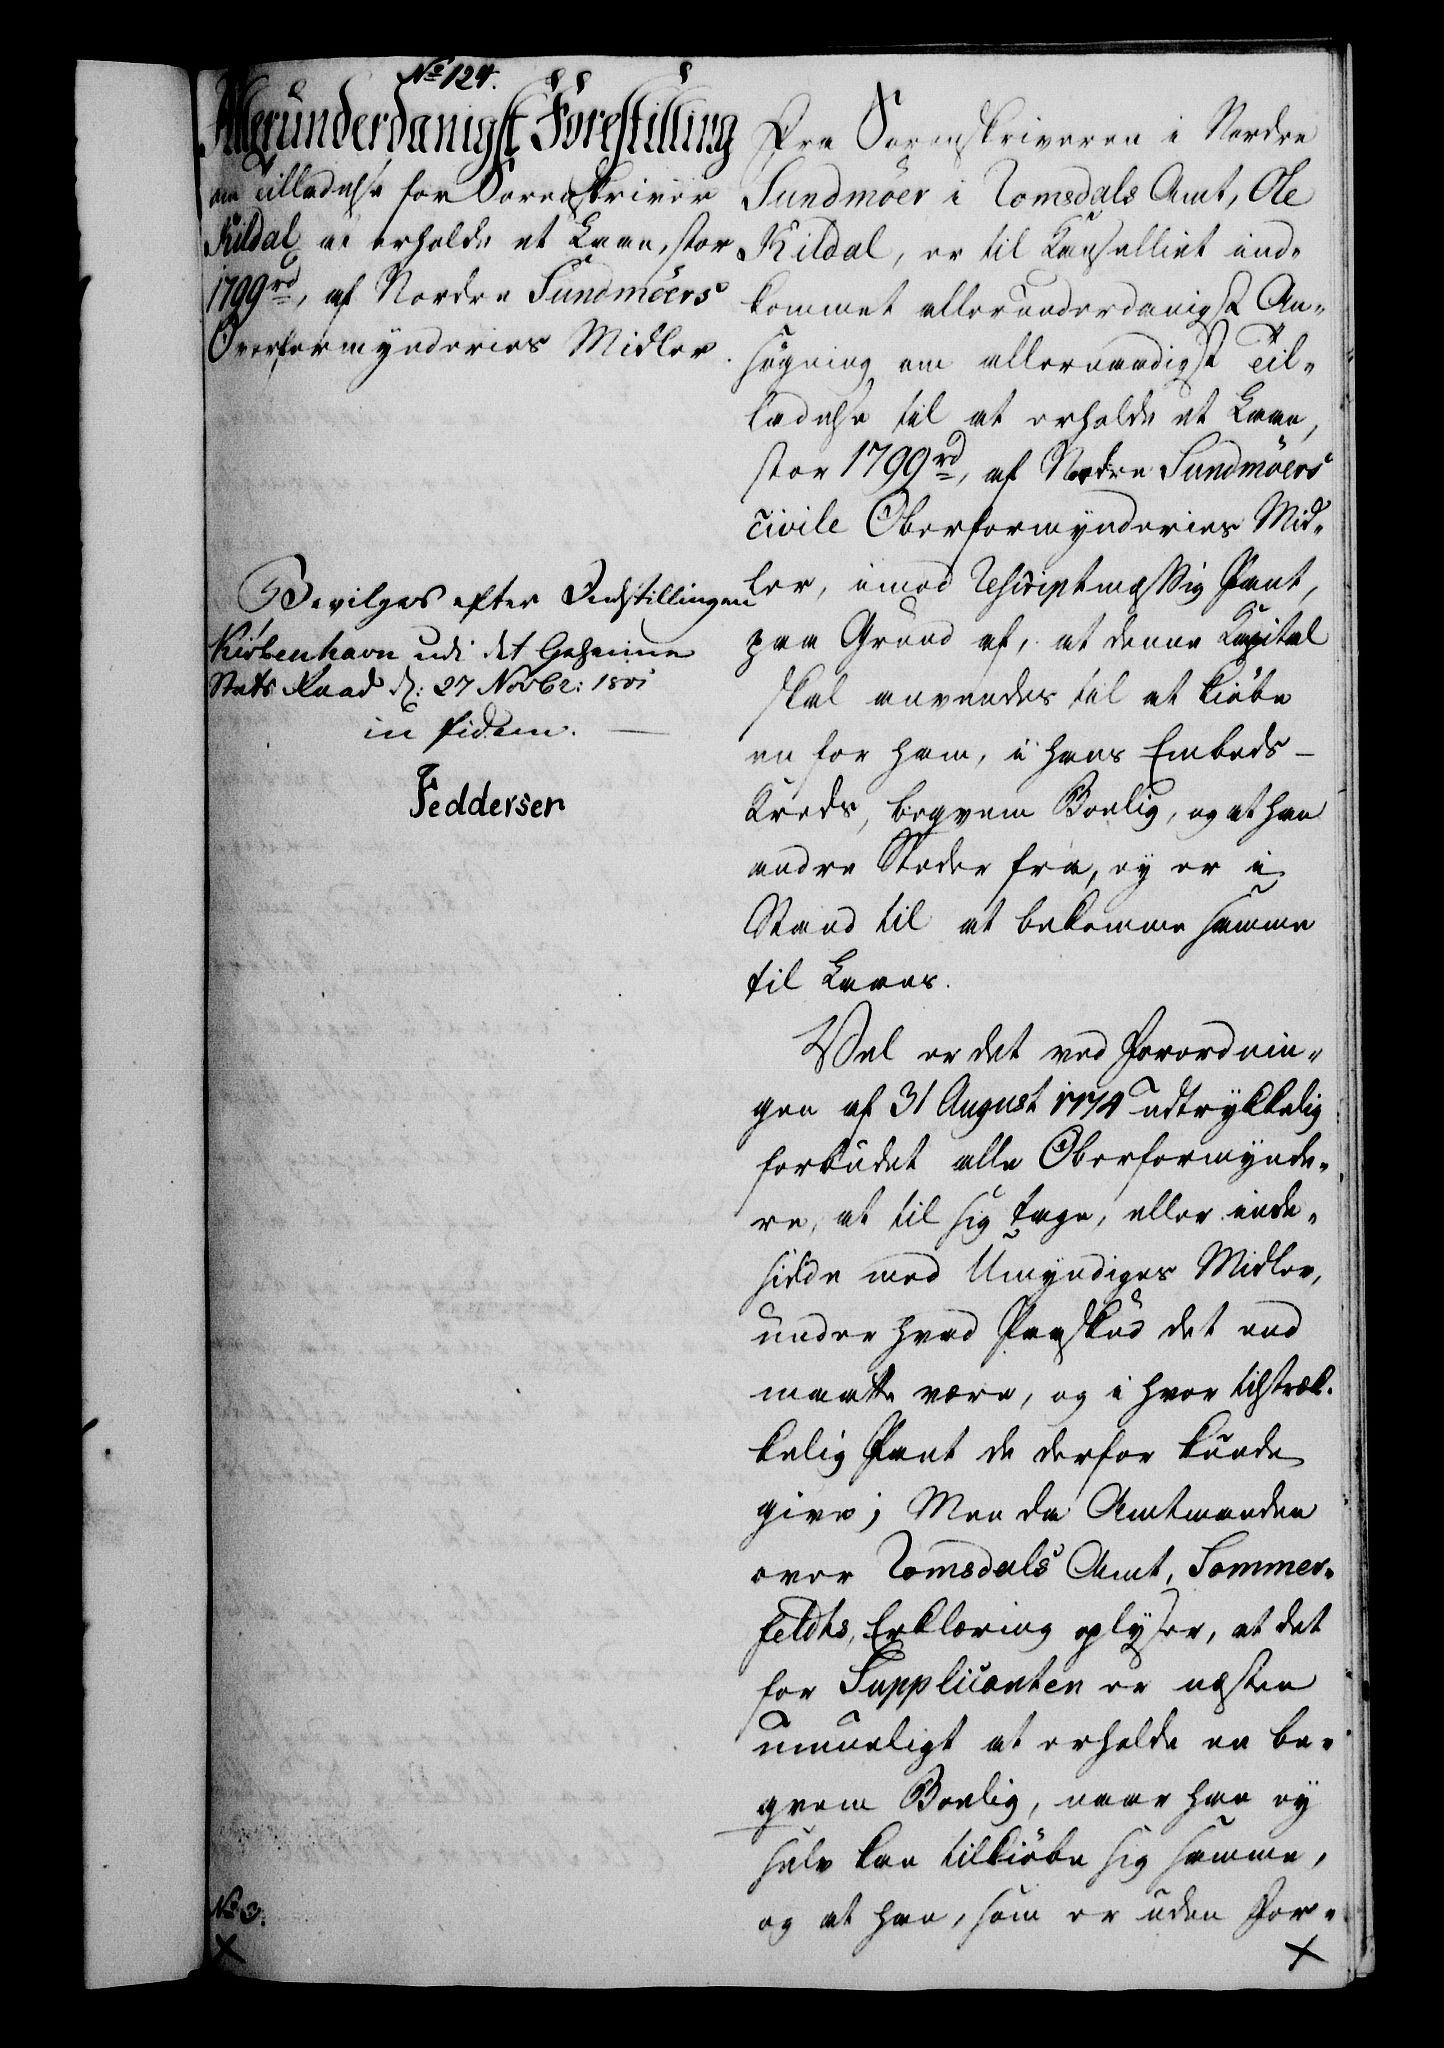 No 124.
Allerunderdanigst Forestilling
om Tilladelse for Sorenskriver
Kildal at erholde et Laan, stor
1799 rd, af Nordre Sundmöers
Overformynderies Midler.
Bevilges efter Indstillingen
Kiöbenhavn udi det Geheime
Stats Raad d: 27 Novbr: 1801
in fidem.
Feddersen
No 3.
Fra Sorenskriveren i Nordre
Sundmöer i Romsdals Amt, Ole
Kildal, er til Kanselliet ind-
kommet allerunderdanigst An-
søgning om allernaadigst Til-
ladelse til at erholde et Laan,
stor 1799 rd, af Nordre Sundmöers
civile Oberformynderies Mid-
ler, imod Rescriptmæssig Pant,
paa Grund af, at denne Kapital
skal anvendes til at kiöbe
en for ham, i hans Embeds-
Kreds, beqvem Boelig, og at han
andre Steder fra, ey er i
Stand til at bekomme samme
til Laans.
Vel er det ved Forordnin-
gen af 31 August 1774 udtrykkelig
forbudet alle Oberformynde-
re, at til sig tage, eller inde-
sidde med Umyndiges Midler,
under hvad Paaskud det end
maatte være, og i hvor tilstræk-
kelig Pant de derfor kunde
give; Men da Amtmanden
over Romsdals Amt, Sommer-
feldts, Erklæring oplyser, at det
for Supplicanten er næsten
umueligt at erholde en be-
qvem Boelig, naar han ey
selv kan tilkiöbe sig samme,
og at han, som er uden For-